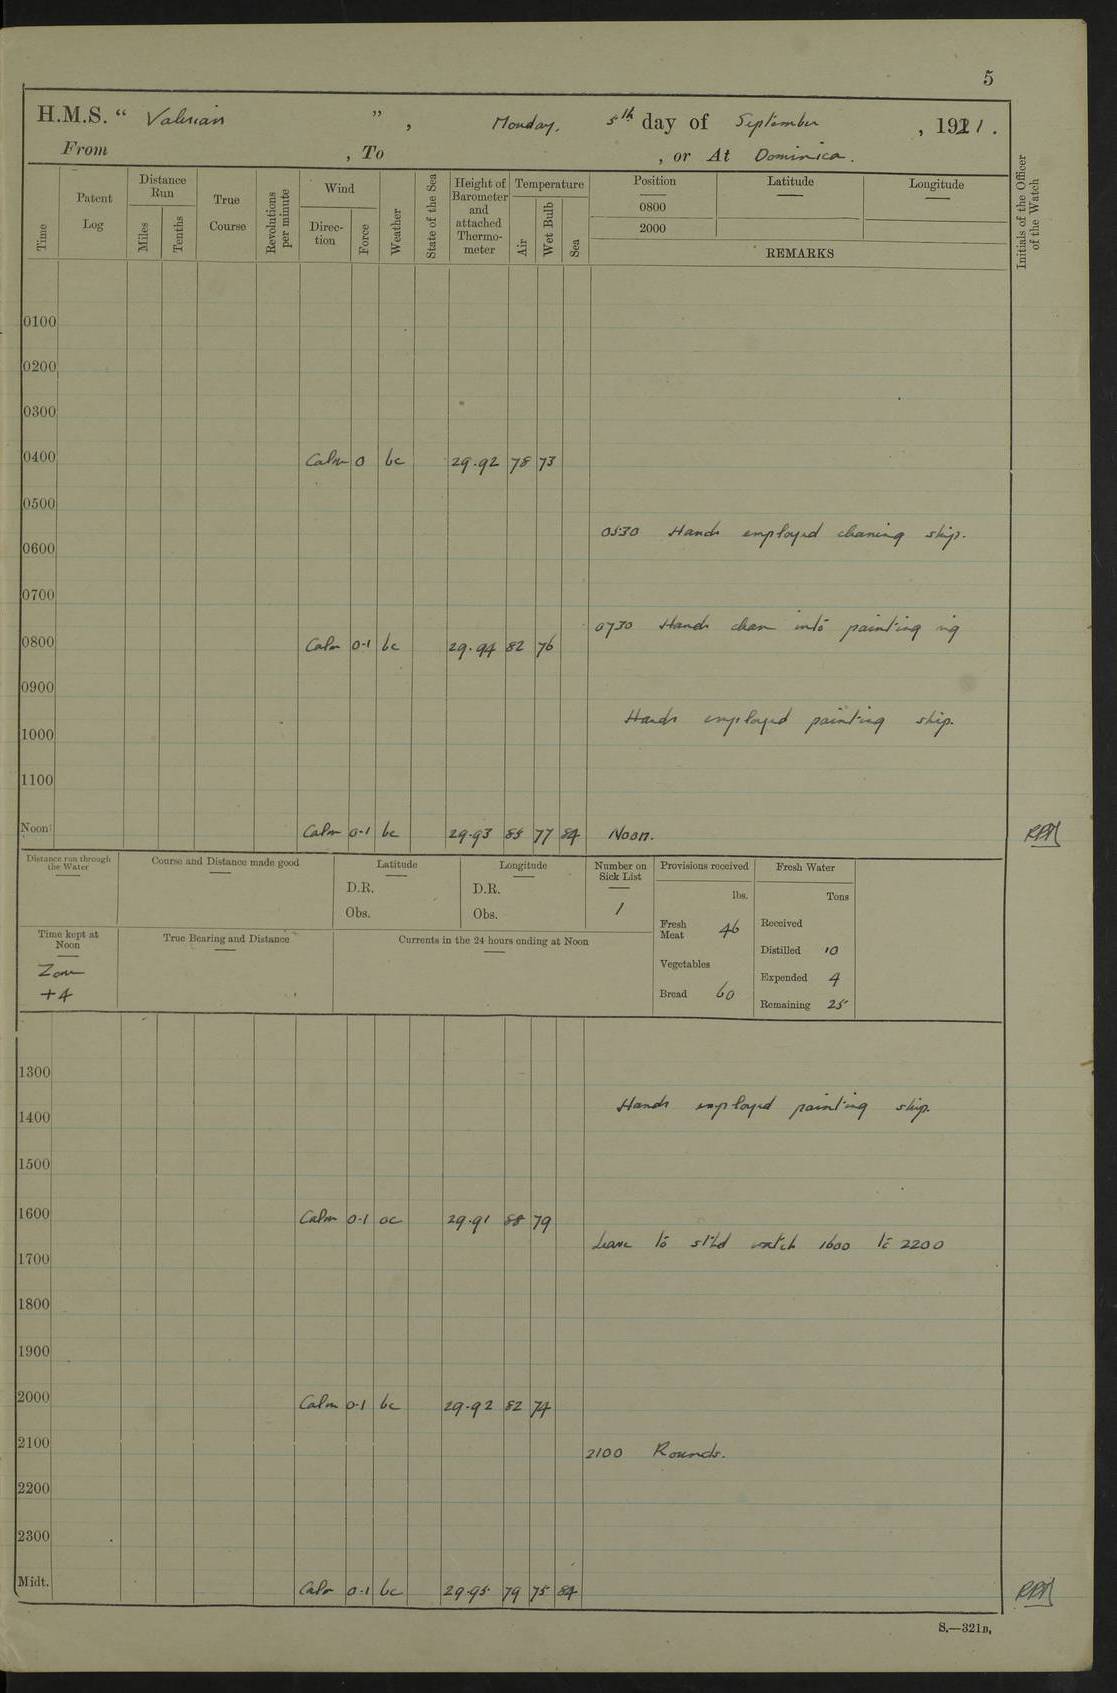 5
H.M.S. “ Valerian ” , Monday. 5th day of September , 1921.
From , To , or At Dominica.
Time Patent Log Distance Run Miles Tenths True Course Revolutions per minute Wind Direction Force Weather State of the Sea Height of Barometer and attached Thermometer Temperature Air Wet Bulb Sea Position Latitude Longitude Initials of the Officer of the Watch
0800
2000
REMARKS
0100
0200
0300
0400 Calm 0 bc 29.92 78 73
0500
0530 Hands employed cleaning ship.
0600
0700
0730 Hands clean into painting rig
0800 Calm 0-1 bc 29.94 82 76
0900
Hands employed painting ship.
1000
1100
Noon Calm 0-1 bc 29.93 85 77 84 Noon.
Distance run through the Water Course and Distance made good Latitude Longitude Number on Sick List Provisions received Fresh Water
D.R. D.R. lbs. Tons
Obs. Obs. 1 Fresh Meat 46 Received
Time kept at Noon True Bearing and Distance Currents in the 24 hours ending at Noon Distilled 10
Zone Vegetables Expended 4
+4 Bread 60 Remaining 25
1300
Hands employed painting ship.
1400
1500
1600 Calm 0-1 oc 29.91 88 79
Leave to stbd watch 1600 to 2200
1700
1800
1900
2000 Calm 0-1 bc 29.92 82 74
2100
2100 Rounds.
2200
2300
Midt. Calm 0-1 bc 29.95 79 75 84
S.—321B.